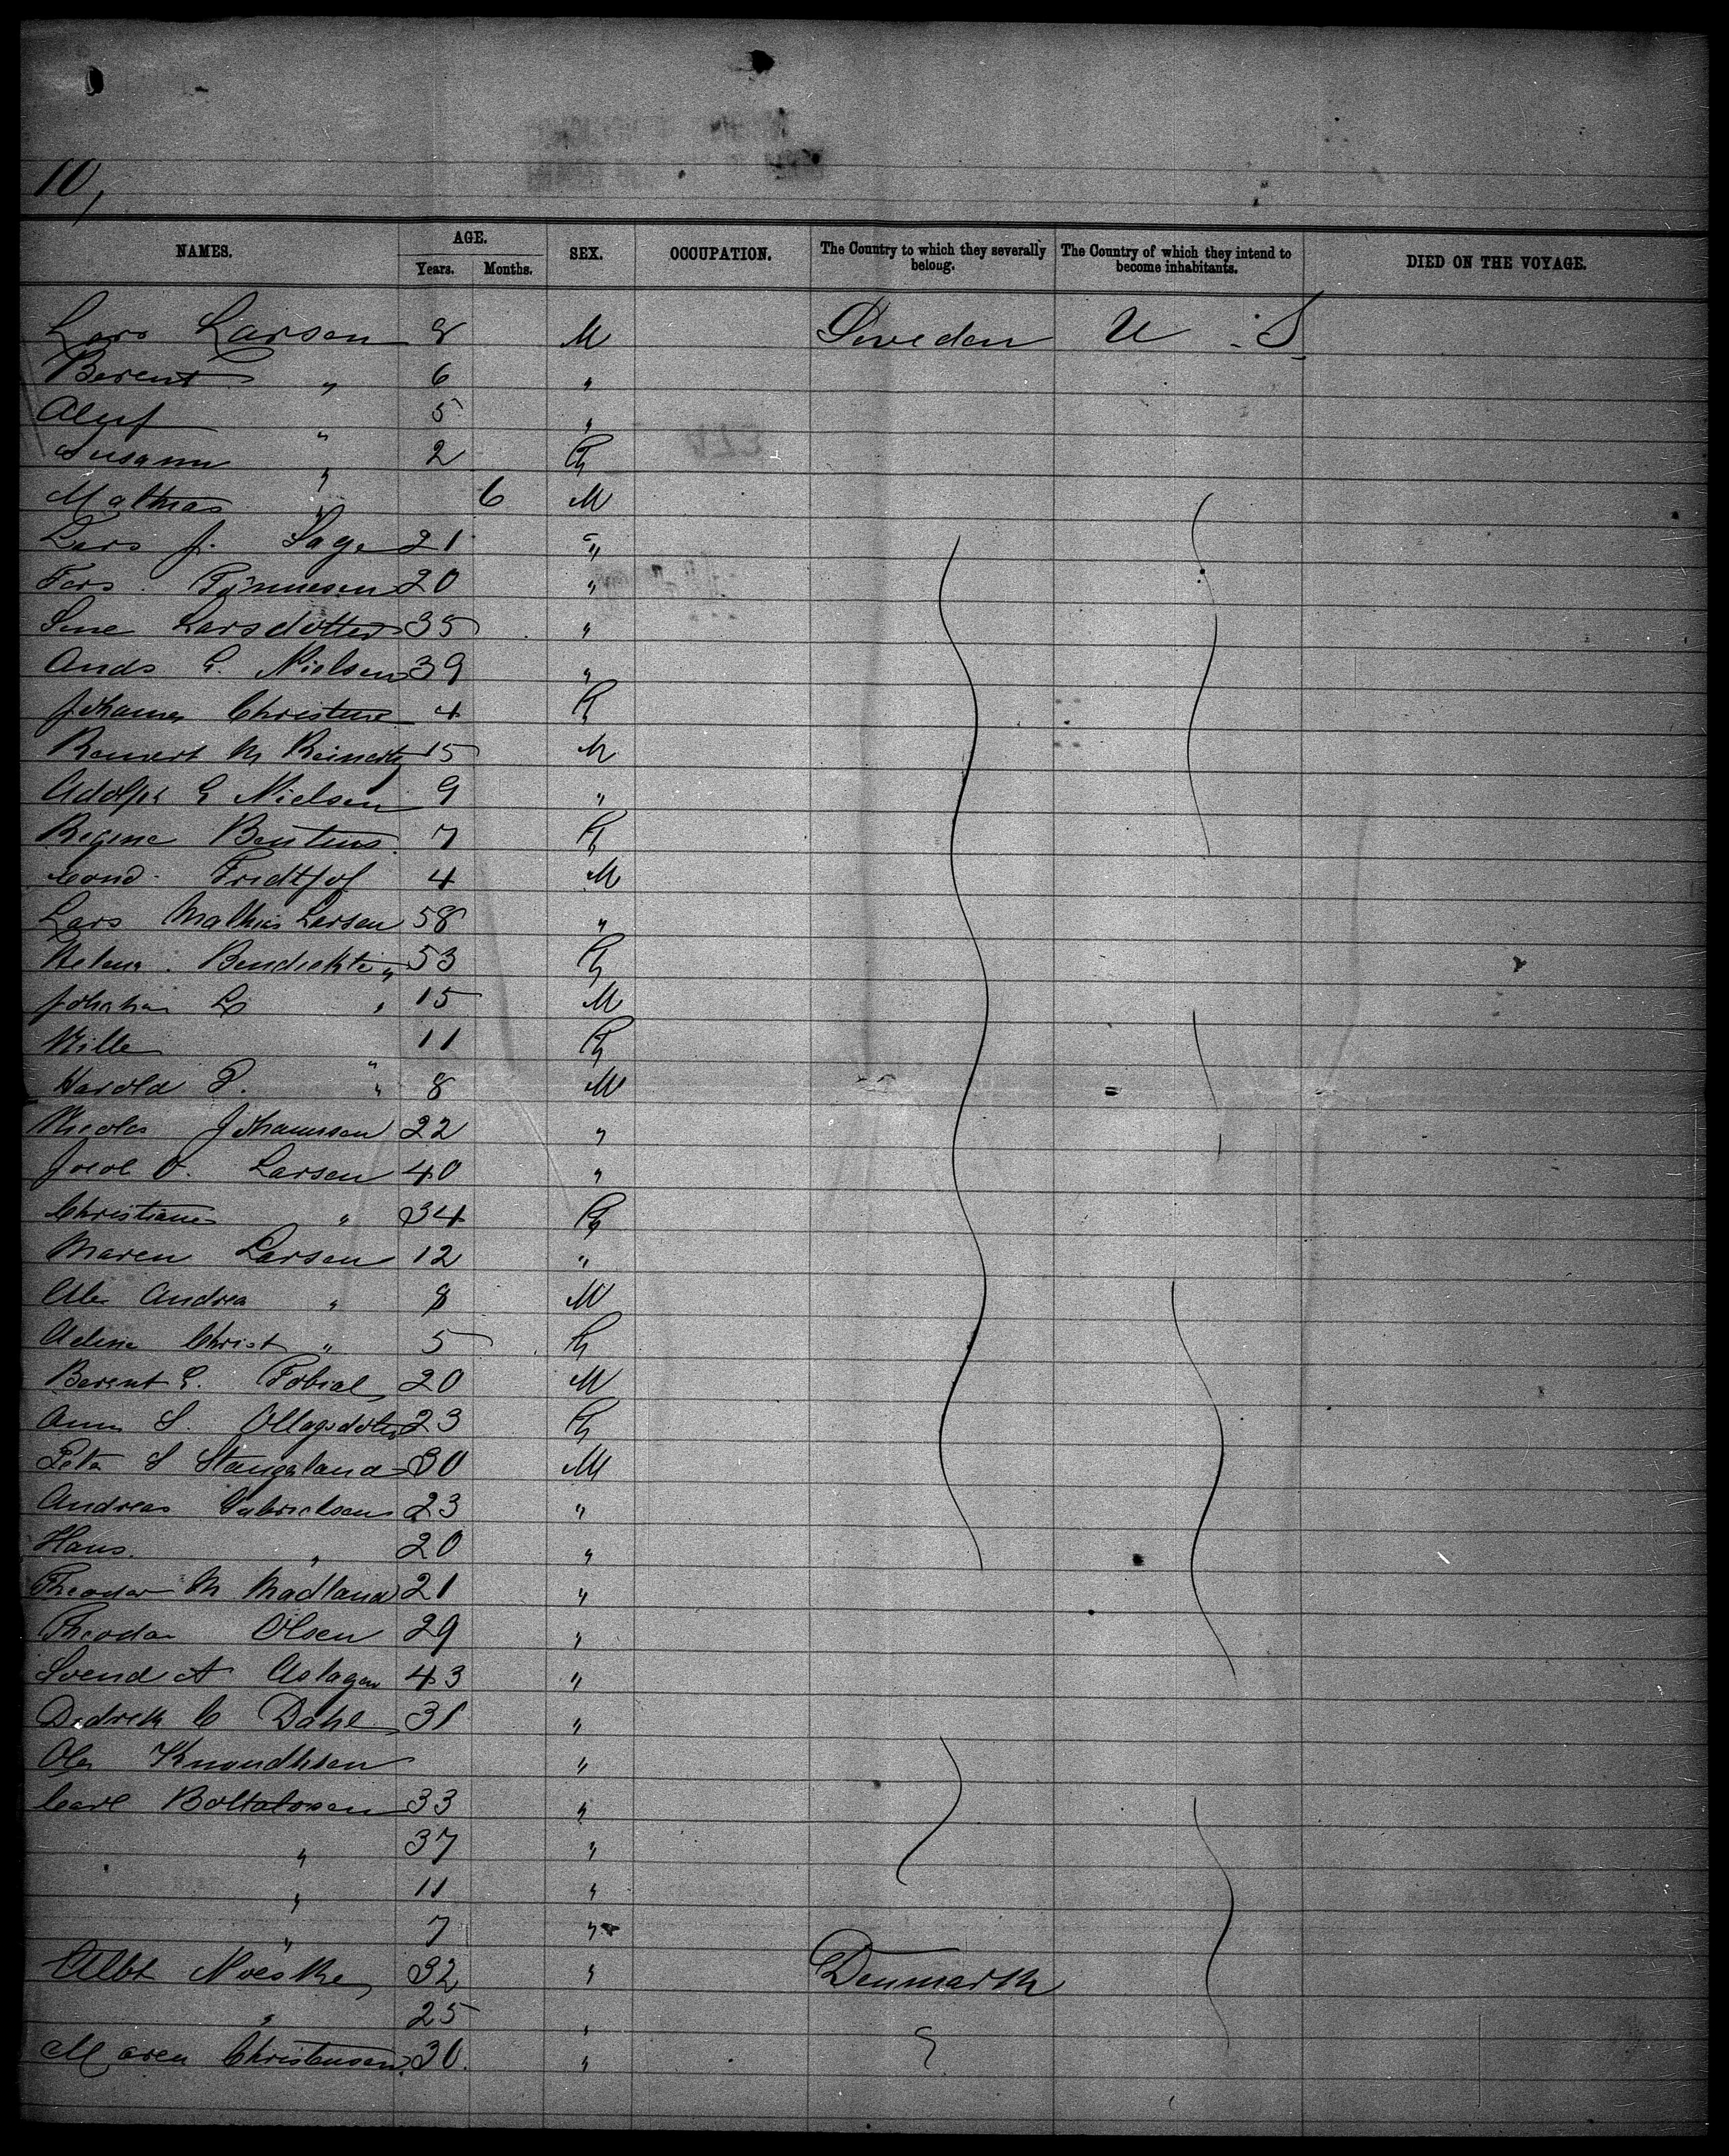 10,
NAMES. AGE. SEX. OCCUPATION. The Country to which they severally belong. The Country of which they intend to become inhabitants. DIED ON THE VOYAGE.
Years. Months.
Lars Larsen 8 M Sweden U.S.
Berent " 6 "
Aluf " 5 "
Susann " 2 F
Mathias " 6 M
Lars J. Sage 21 "
Fers. Tjinnesen 20 "
Sine Larsdotter 35 "
Ands G. Nielsen 39 "
Johanes Christine 4 F
Reinert M Reinerts 15 M
Adolph G Nielsen 9 "
Regine Bentins 7 F
Cond. Fridtjof 4 M
Lars Mathias Larsen 58 "
Helena Bendickte " 53 F
Johahan L " 15 M
Nille " 11 F
Harold P. " 8 M
Nicolas Johannsen 22 "
Jocob O. Larsen 40 "
Christiane " 34 F
Maren Larsen 12 "
Ole Andrea " 8 M
Adina Christ " 5 F
Berent G. Tobial 20 M
Anna S. Ollagsdotter 23 F
Peter S Stangeland 30 M
Andreas Gabrielsen 23 "
Hans " 20 "
Theodor M Madland 21 "
Theodor Olsen 29 "
Svend A Aslagen 43 "
Didrich C Dahl 31 "
Ole Knoudtsen "
Carl Boltolosen 33 "
" 37 "
" 11 "
" 7 "
Albt Noeske 32 " Denmark
" 25 "
Maren Christensen 30. " "